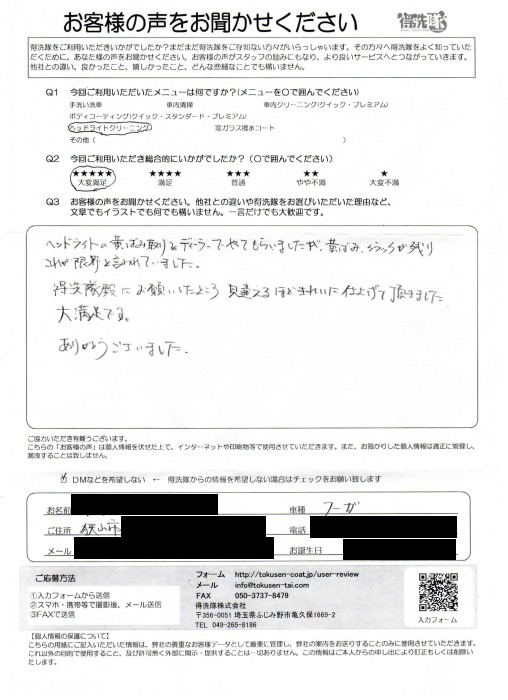 お客様の声をお聞かせください
得洗隊
得洗隊をご利用いただきいかがでしたか？まだまだ得洗隊をご存知ない方々がいらっしゃいます。その方々へ得洗隊をよく知っていた
だくために、あなた様の声をお聞かせください。お客様の声がスタッフの励みにもなり、より良いサービスへとつながっていきます。
他社との違い、良かったこと、嬉しかったこと、どんな些細なことでも構いません。
Q1 今回ご利用いただいたメニューは何ですか？(メニューを〇で囲んでください)
手洗い洗車 車内清掃 車内クリーニング(クイック・プレミアム)
ボディコーティング(クイック・スタンダード・プレミアム)
ヘッドライトクリーニング 窓ガラス撥水コート
その他 ( )
Q2 今回ご利用いただき総合的にいかがでしたか？（〇で囲んでください）
★★★★★ ★★★★ ★★★ ★★ ★
大変満足 満足 普通 やや不満 大変不満
Q3 お客様の声をお聞かせください。他社との違いや得洗隊をお選びいただいた理由など、
文章でもイラストでも何でも構いません。一言だけでも大歓迎です。
ヘッドライトの黄ばみ取りをディーラーでやってもらいましたが、黄ばみ、クラックが残り
これが限界と言われていました。
得洗隊殿にお願いしたところ 見違えるほどきれいに仕上げて頂きました
大満足です。
ありがとうございました。
ご協力いただき有難うございます。
こちらの「お客様の声」は個人情報を伏せた上で、インターネットや印刷物等で使用させていただきます。また、お預かりした個人情報は適正に管理し、
漏洩することは致しません。
DMなどを希望しない ← 得洗隊からの情報を希望しない場合はチェックをお願い致します
お名前 車種 フーガ
ご住所 狭山市 電話
メール お誕生日
ご応募方法
①入力フォームから送信
②スマホ・携帯等で撮影後、メール送信
③FAXで送信
フォーム http://tokusen-coat.jp/user-review
メール info@tokusen-tai.com
FAX 050-3737-8479
得洗隊株式会社
〒356-0051 埼玉県ふじみ野市亀久保1669-2
TEL 049-265-8186
入力フォーム
【個人情報の保護について】
こちらの用紙にご記入いただいた情報は、弊社の貴重なお客様データとして厳重に管理し、弊社の案内をお送りすることのみに使用させていただきます。
これ以外の目的で使用すること、及び許可無く外部に開示・提供することは一切ありません。この情報はご本人からの申し出により訂正もしくは削除い
たします。